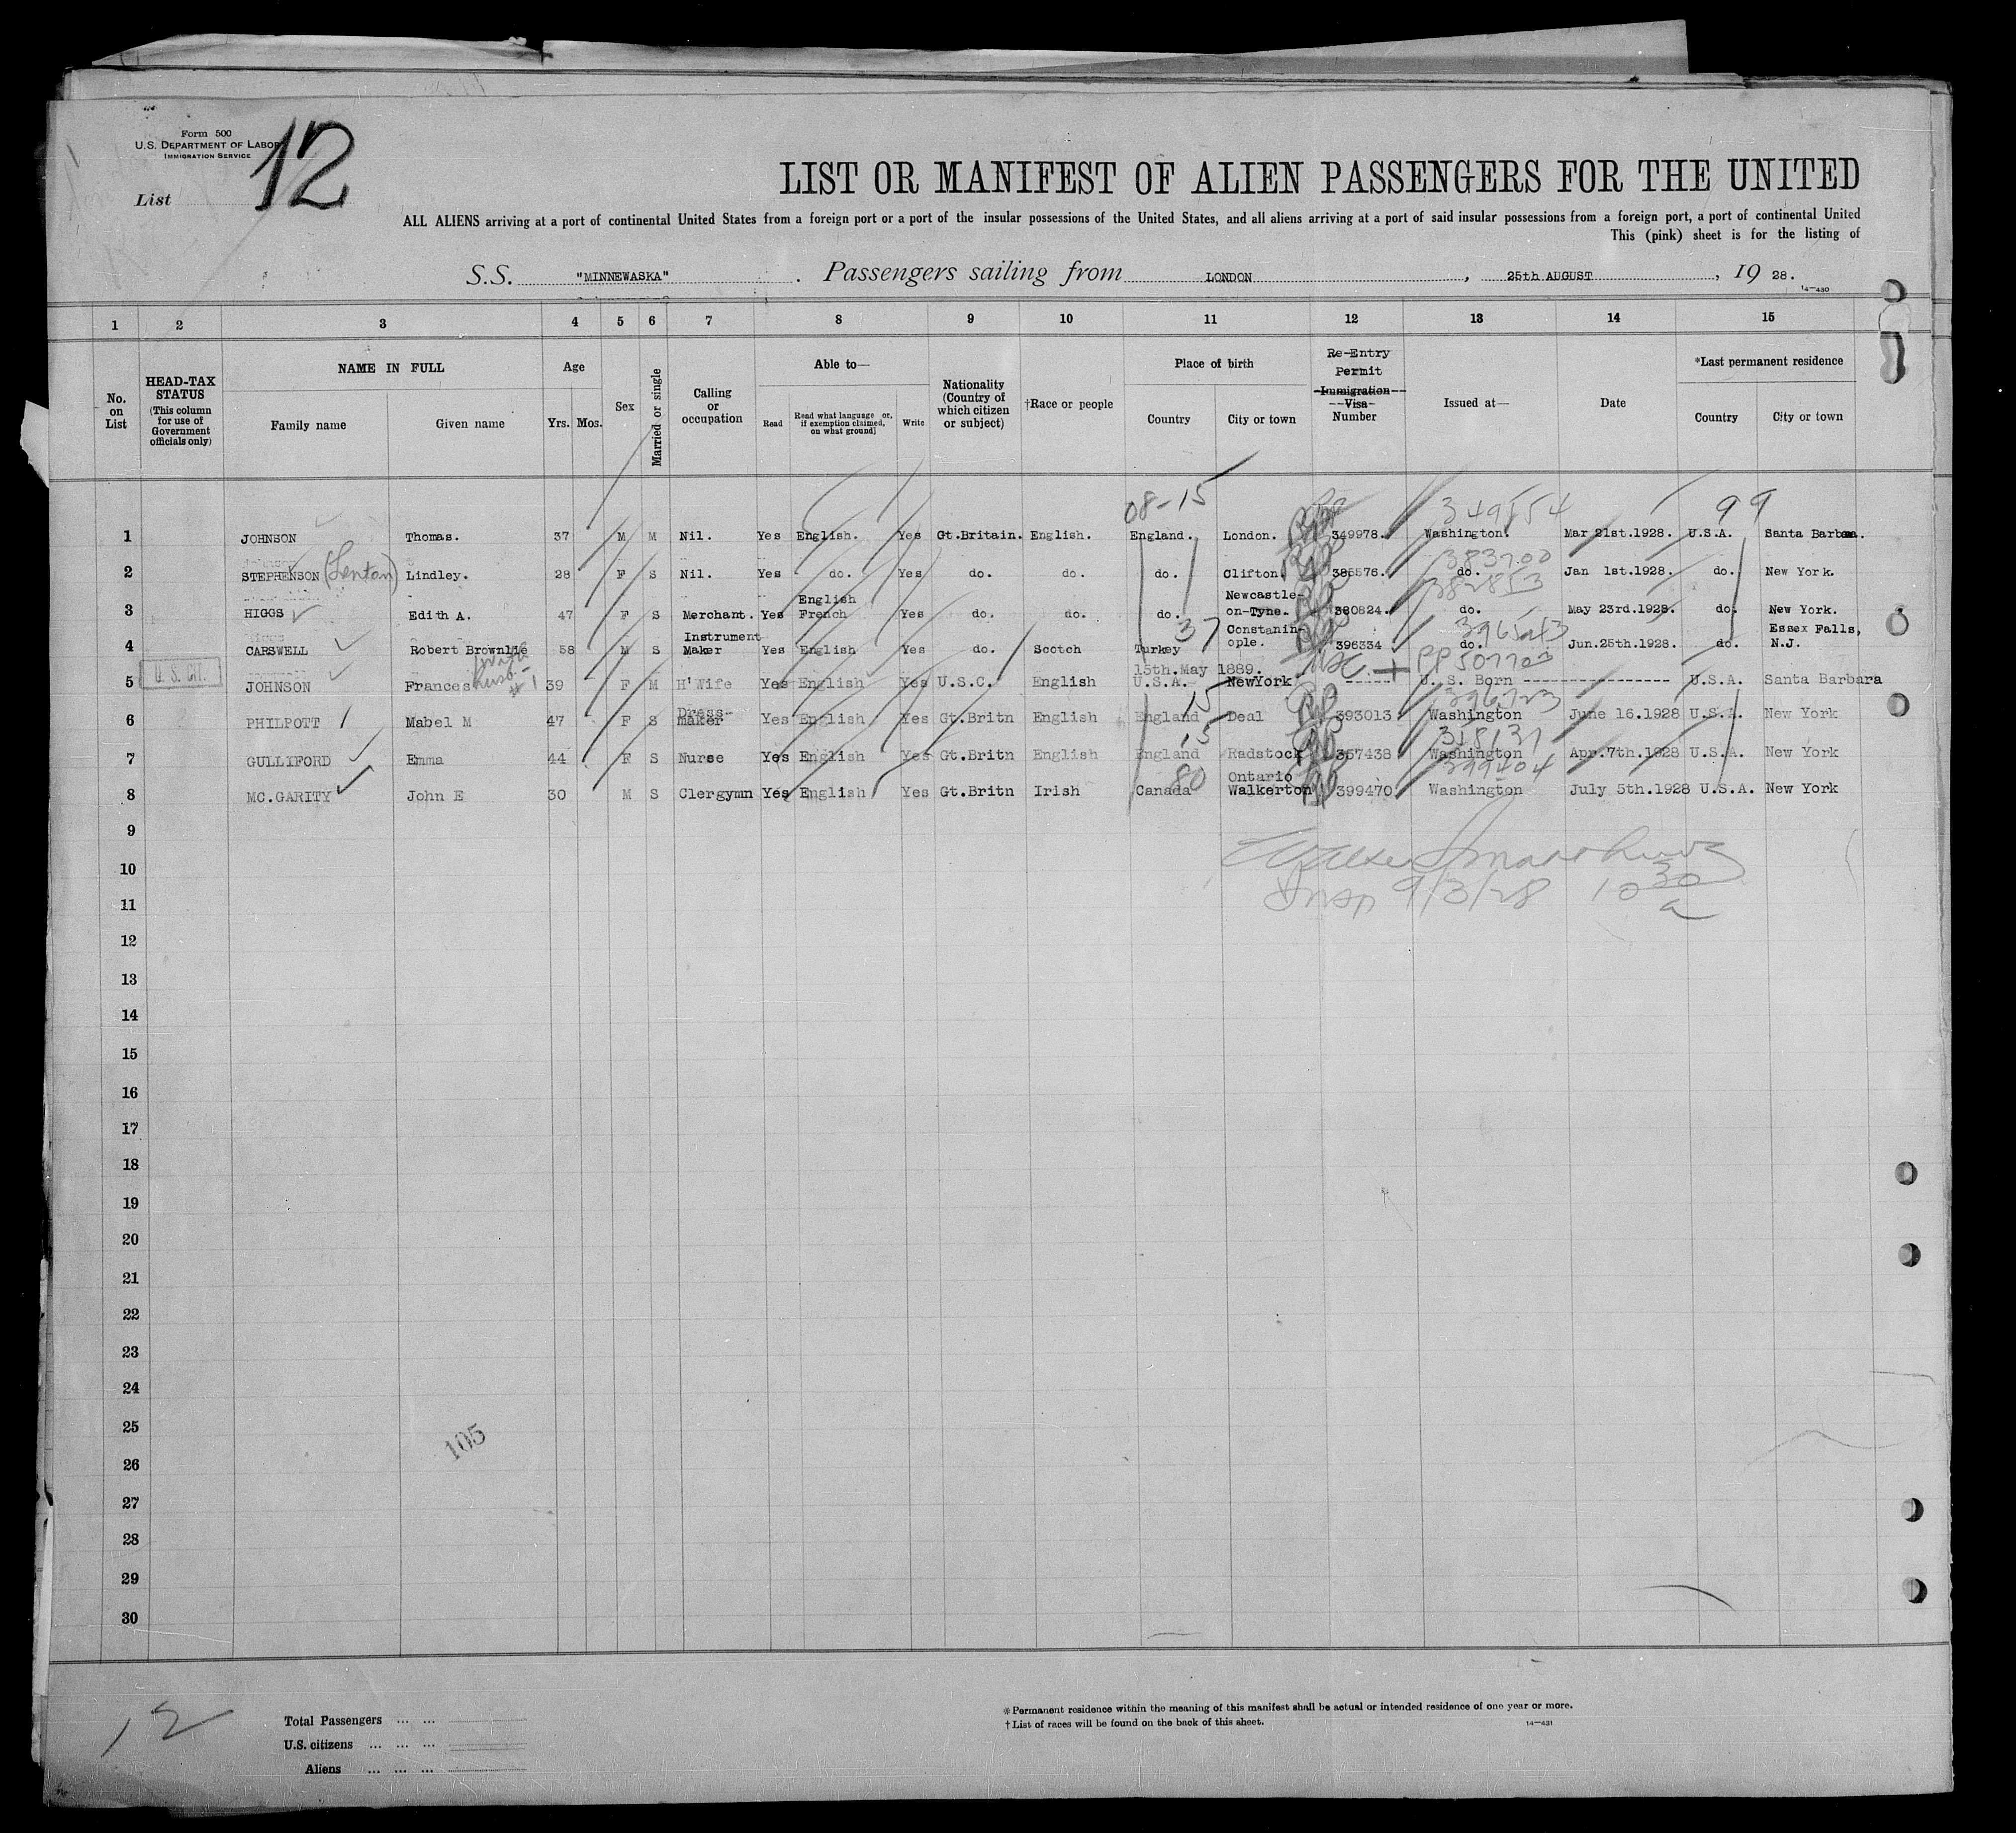 Form 500
U.S. DEPARTMENT OF LABOR
IMMIGRATION SERVICE
List 12
LIST OR MANIFEST OF ALIEN PASSENGERS FOR THE UNITED
ALL ALIENS arriving at a port of continental United States from a foreign port or a port of the insular possessions of the United States, and all aliens arriving at a port of said insular possessions from a foreign port, a port of continental United
This (pink) sheet is for the listing of
S.S. "MINNEWASKA". Passengers sailing from LONDON, 25th AUGUST, 19 28.
14—430
1 2 3 4 5 6 7 8 9 10 11 12 13 14 15
No. on List
HEAD-TAX STATUS (This column for use of Government officials only)
NAME IN FULL
Family name Given name
Age
Yrs. Mos.
Sex
Married or single
Calling or occupation
Able to—
Read Read what language [or, if exemption claimed, on what ground] Write
Nationality (Country of which citizen or subject)
†Race or people
Place of birth
Country City or town
Re-Entry Permit
Immigration Visa Number
Issued at—
Date
*Last permanent residence
Country City or town
08-15 349554 99
1 JOHNSON Thomas. 37 M M Nil. Yes English. Yes Gt.Britain. English. England. London. 349978. Washington. Mar 21st.1928. U.S.A. Santa Barbara.
383700
2 STEPHENSON (Lenton) Lindley. 28 F S Nil. Yes do. Yes do. do. do. Clifton 385576. do. Jan 1st.1928. do. New York.
382853
3 HIGGS Edith A. 47 F S Merchant. Yes English French Yes do. do. do. Newcastle-on-Tyne. 380824. do. May 23rd.1928. do. New York.
37 396543
4 CARSWELL Robert Brownlie 58 M S Instrument Maker Yes English Yes do. Scotch Turkey Constanin-ople. 396334 do. Jun.25th.1928. do. Essex Falls, N.J.
U.S. CIT. wife husb- #1 15th.May 1889. USC + PP 507703
5 JOHNSON Frances 39 F M H'Wife Yes English Yes U.S.C. English U.S.A. NewYork ----- U.S. Born ---------------- U.S.A. Santa Barbara
15 396723
6 PHILPOTT Mabel M 47 F S Dress-maker Yes English Yes Gt.Britn English England Deal 393013 Washington June 16.1928 U.S.A. New York
15 358137
7 GULLIFORD Emma 44 F S Nurse Yes English Yes Gt.Britn English England Radstock 357438 Washington Apr.7th.1928 U.S.A. New York
80 399404
8 MC.GARITY John E 30 M S Clergymn Yes English Yes Gt.Britn Irish Canada Ontario Walkerton 399470 Washington July 5th.1928 U.S.A. New York
9
10
Insp 9/3/28 10 30 a
11
12
13
14
15
16
17
18
19
20
21
22
23
24
25
105
26
27
28
29
30
12
Total Passengers ... ...
U.S. citizens ... ... ...
Aliens ... ... ...
*Permanent residence within the meaning of this manifest shall be actual or intended residence of one year or more.
†List of races will be found on the back of this sheet.
14—431